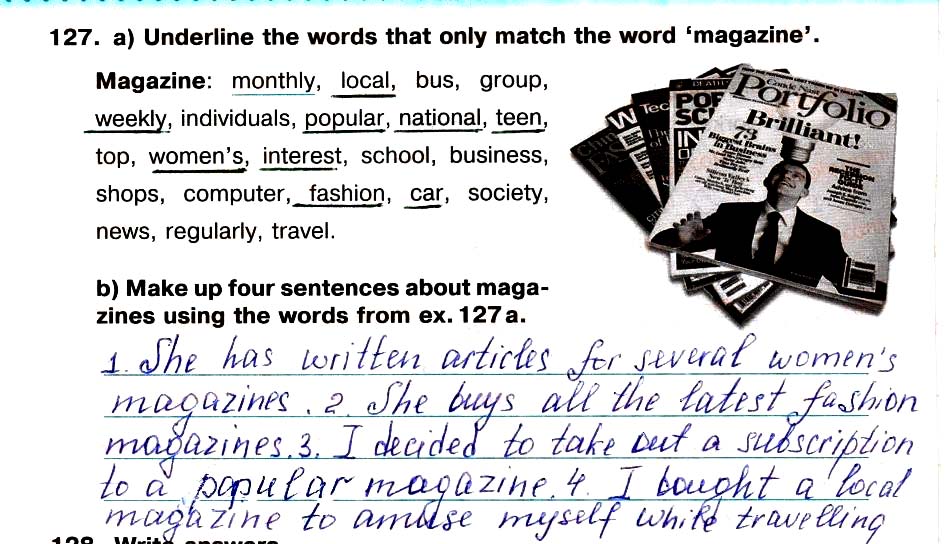 127. a) Underline the words that only match the word ‘magazine’.
Magazine: monthly, local, bus, group,
weekly, individuals, popular, national, teen,
top, women’s, interest, school, business,
shops, computer, fashion, car, society,
news, regularly, travel.
Conde Nast
Portfolio
Brilliant!
73
Biggest Brains
in Business
POP
SCI
IN
Tec
W
b) Make up four sentences about maga-
zines using the words from ex. 127 a.
1. She has written articles for several women's
magazines. 2. She buys all the latest fashion
magazines. 3. I decided to take out a subscription
to a popular magazine. 4. I bought a local
magazine to amuse myself while travelling
128. Write answers